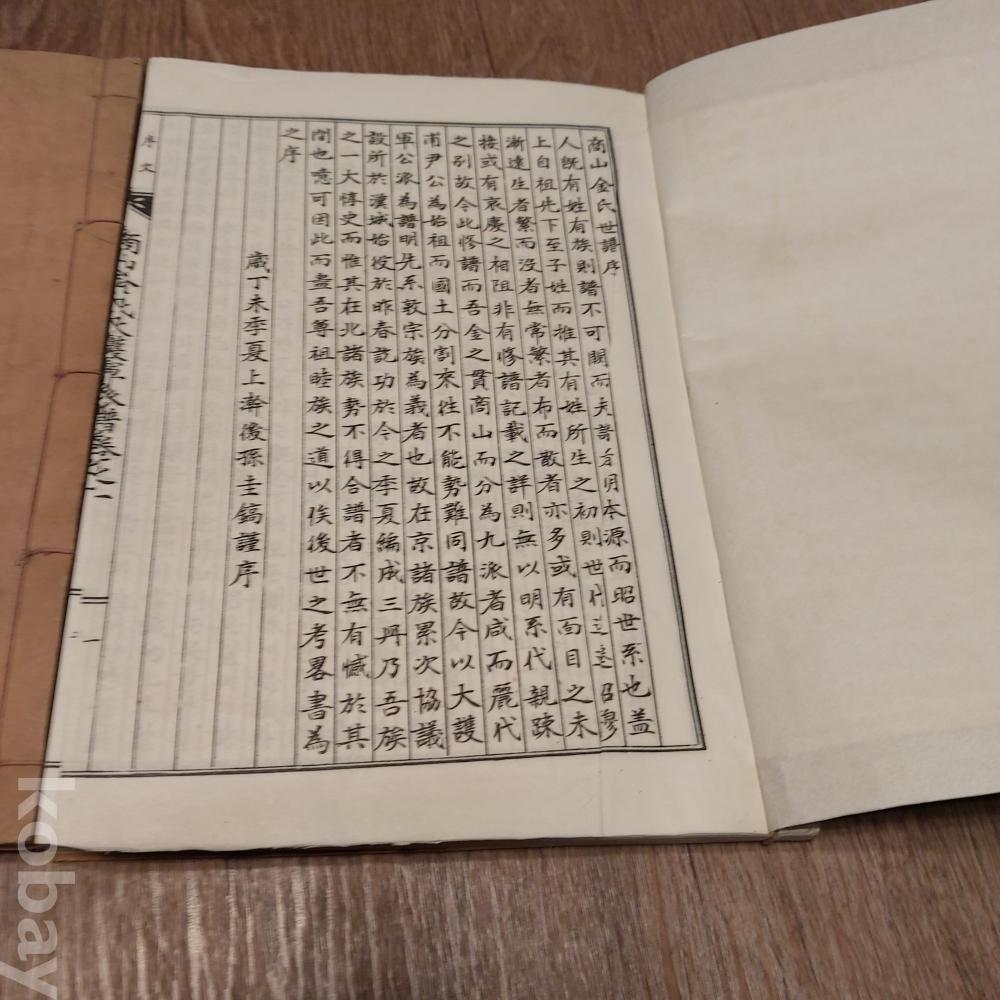 商山金氏世譜序
人旣有姓有族則譜不可闕而夫譜者明本源而昭世系也盖
上自祖先下至子姓而推其有姓所生之初則世代遠昭穆
漸遠生者繁而沒者無常繁者布而散者亦多或有面目之未
接或有哀慶之相阻非有修譜記載之詳則無以明系代親踈
之別故今此修譜而吾金之貫商山而分為九派者咸而麗代
甫尹公為始祖而國土分割來徃不能勢難同譜故今以大護
軍公派為譜明先系敦宗族為義者也故在京諸族累次協議
設所於漢城始役於昨春訖功於今之季夏編成三冊乃吾族
之一大惇史而惟其在北諸族勢不得合譜者不無有憾於其
間也噫可因此而盡吾尊祖睦族之道以俟後世之考畧書為
之序
歲丁未季夏上澣後孫圭鎬謹序
序文
商山金氏大護軍派譜卷之一
一
kobay